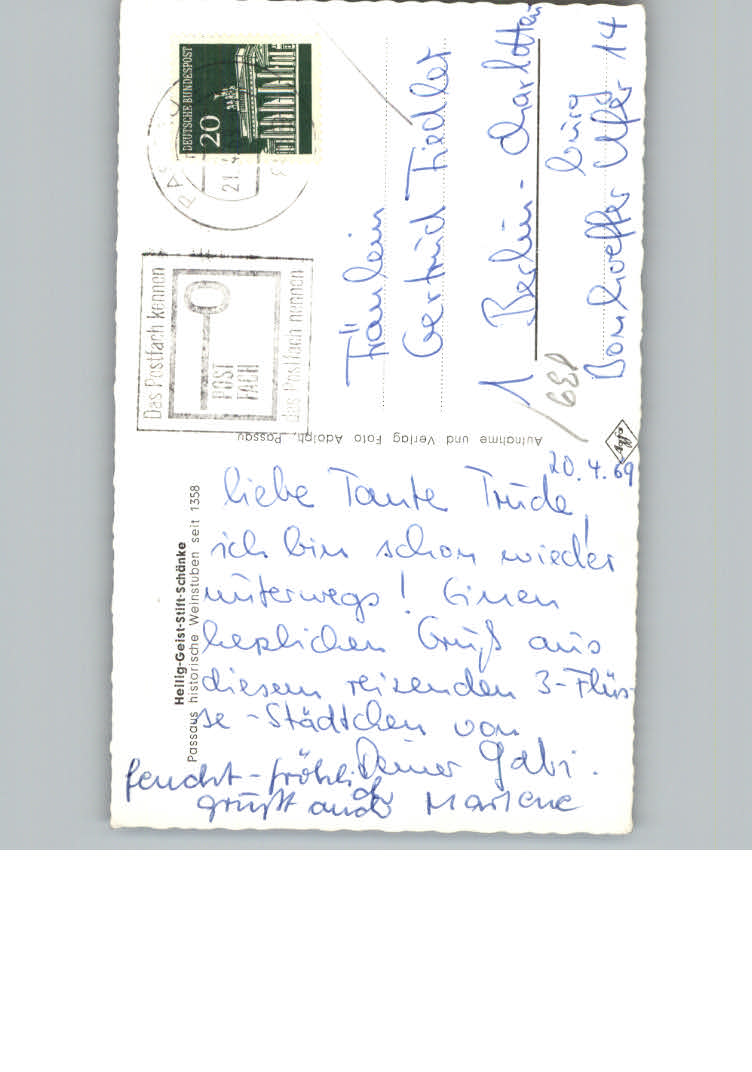 Heilig-Geist-Stift-Schänke
Passaus historische Weinstuben seit 1358
20.4.69
liebe Tante Trude,
ich bin schon wieder
unterwegs! Einen
herzlichen Gruß aus
diesem reizenden 3-Flüs-
se-Städtchen von
Deiner Gabi.
feucht-fröhlich
grüßt auch Marlene
Aufnahme und Verlag Foto Adolph, Passau
Agfa
DEUTSCHE BUNDESPOST
20
21.4
Das Postfach kennen
POST
FACH
das Postfach nennen
Fräulein
Gertrud Fiedler
1 Berlin-Charlotten
burg
Bonhoeffer Ufer 14